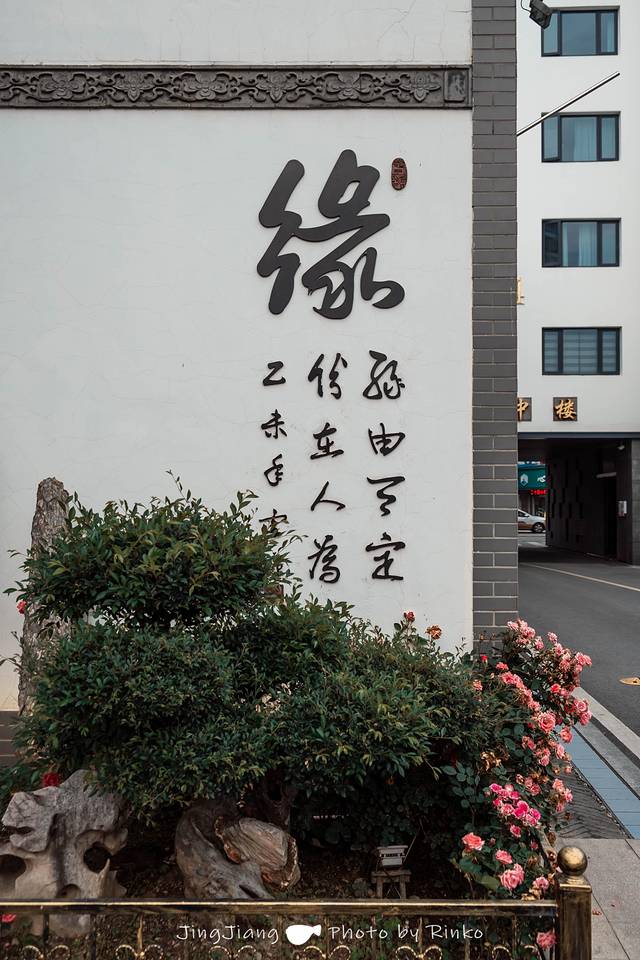 緣
緣由天定
份在人為
乙未年
中楼
心
JingJiang Photo by Rinko